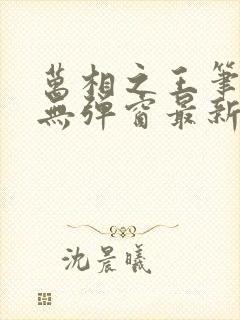 萬相之王筆
無彈窗最新
沈晨曦